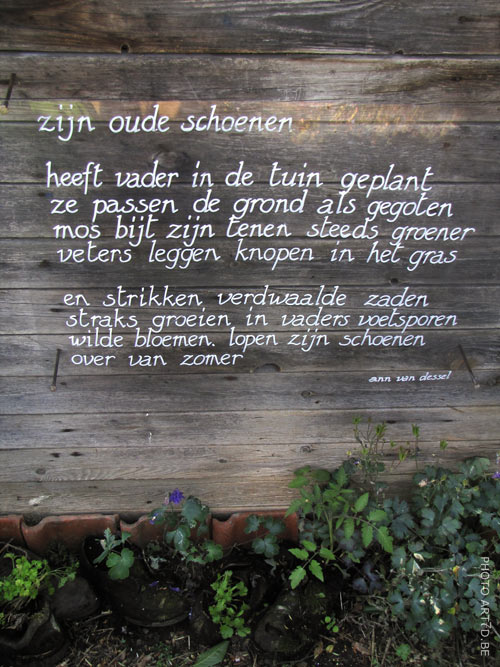 zijn oude schoenen
heeft vader in de tuin geplant
ze passen de grond als gegoten
mos bijt zijn tenen steeds groener
veters leggen knopen in het gras
en strikken verdwaalde zaden
straks groeien in vaders voetsporen
wilde bloemen. lopen zijn schoenen
over van zomer
ann van dessel
PHOTO ARTTD.BE